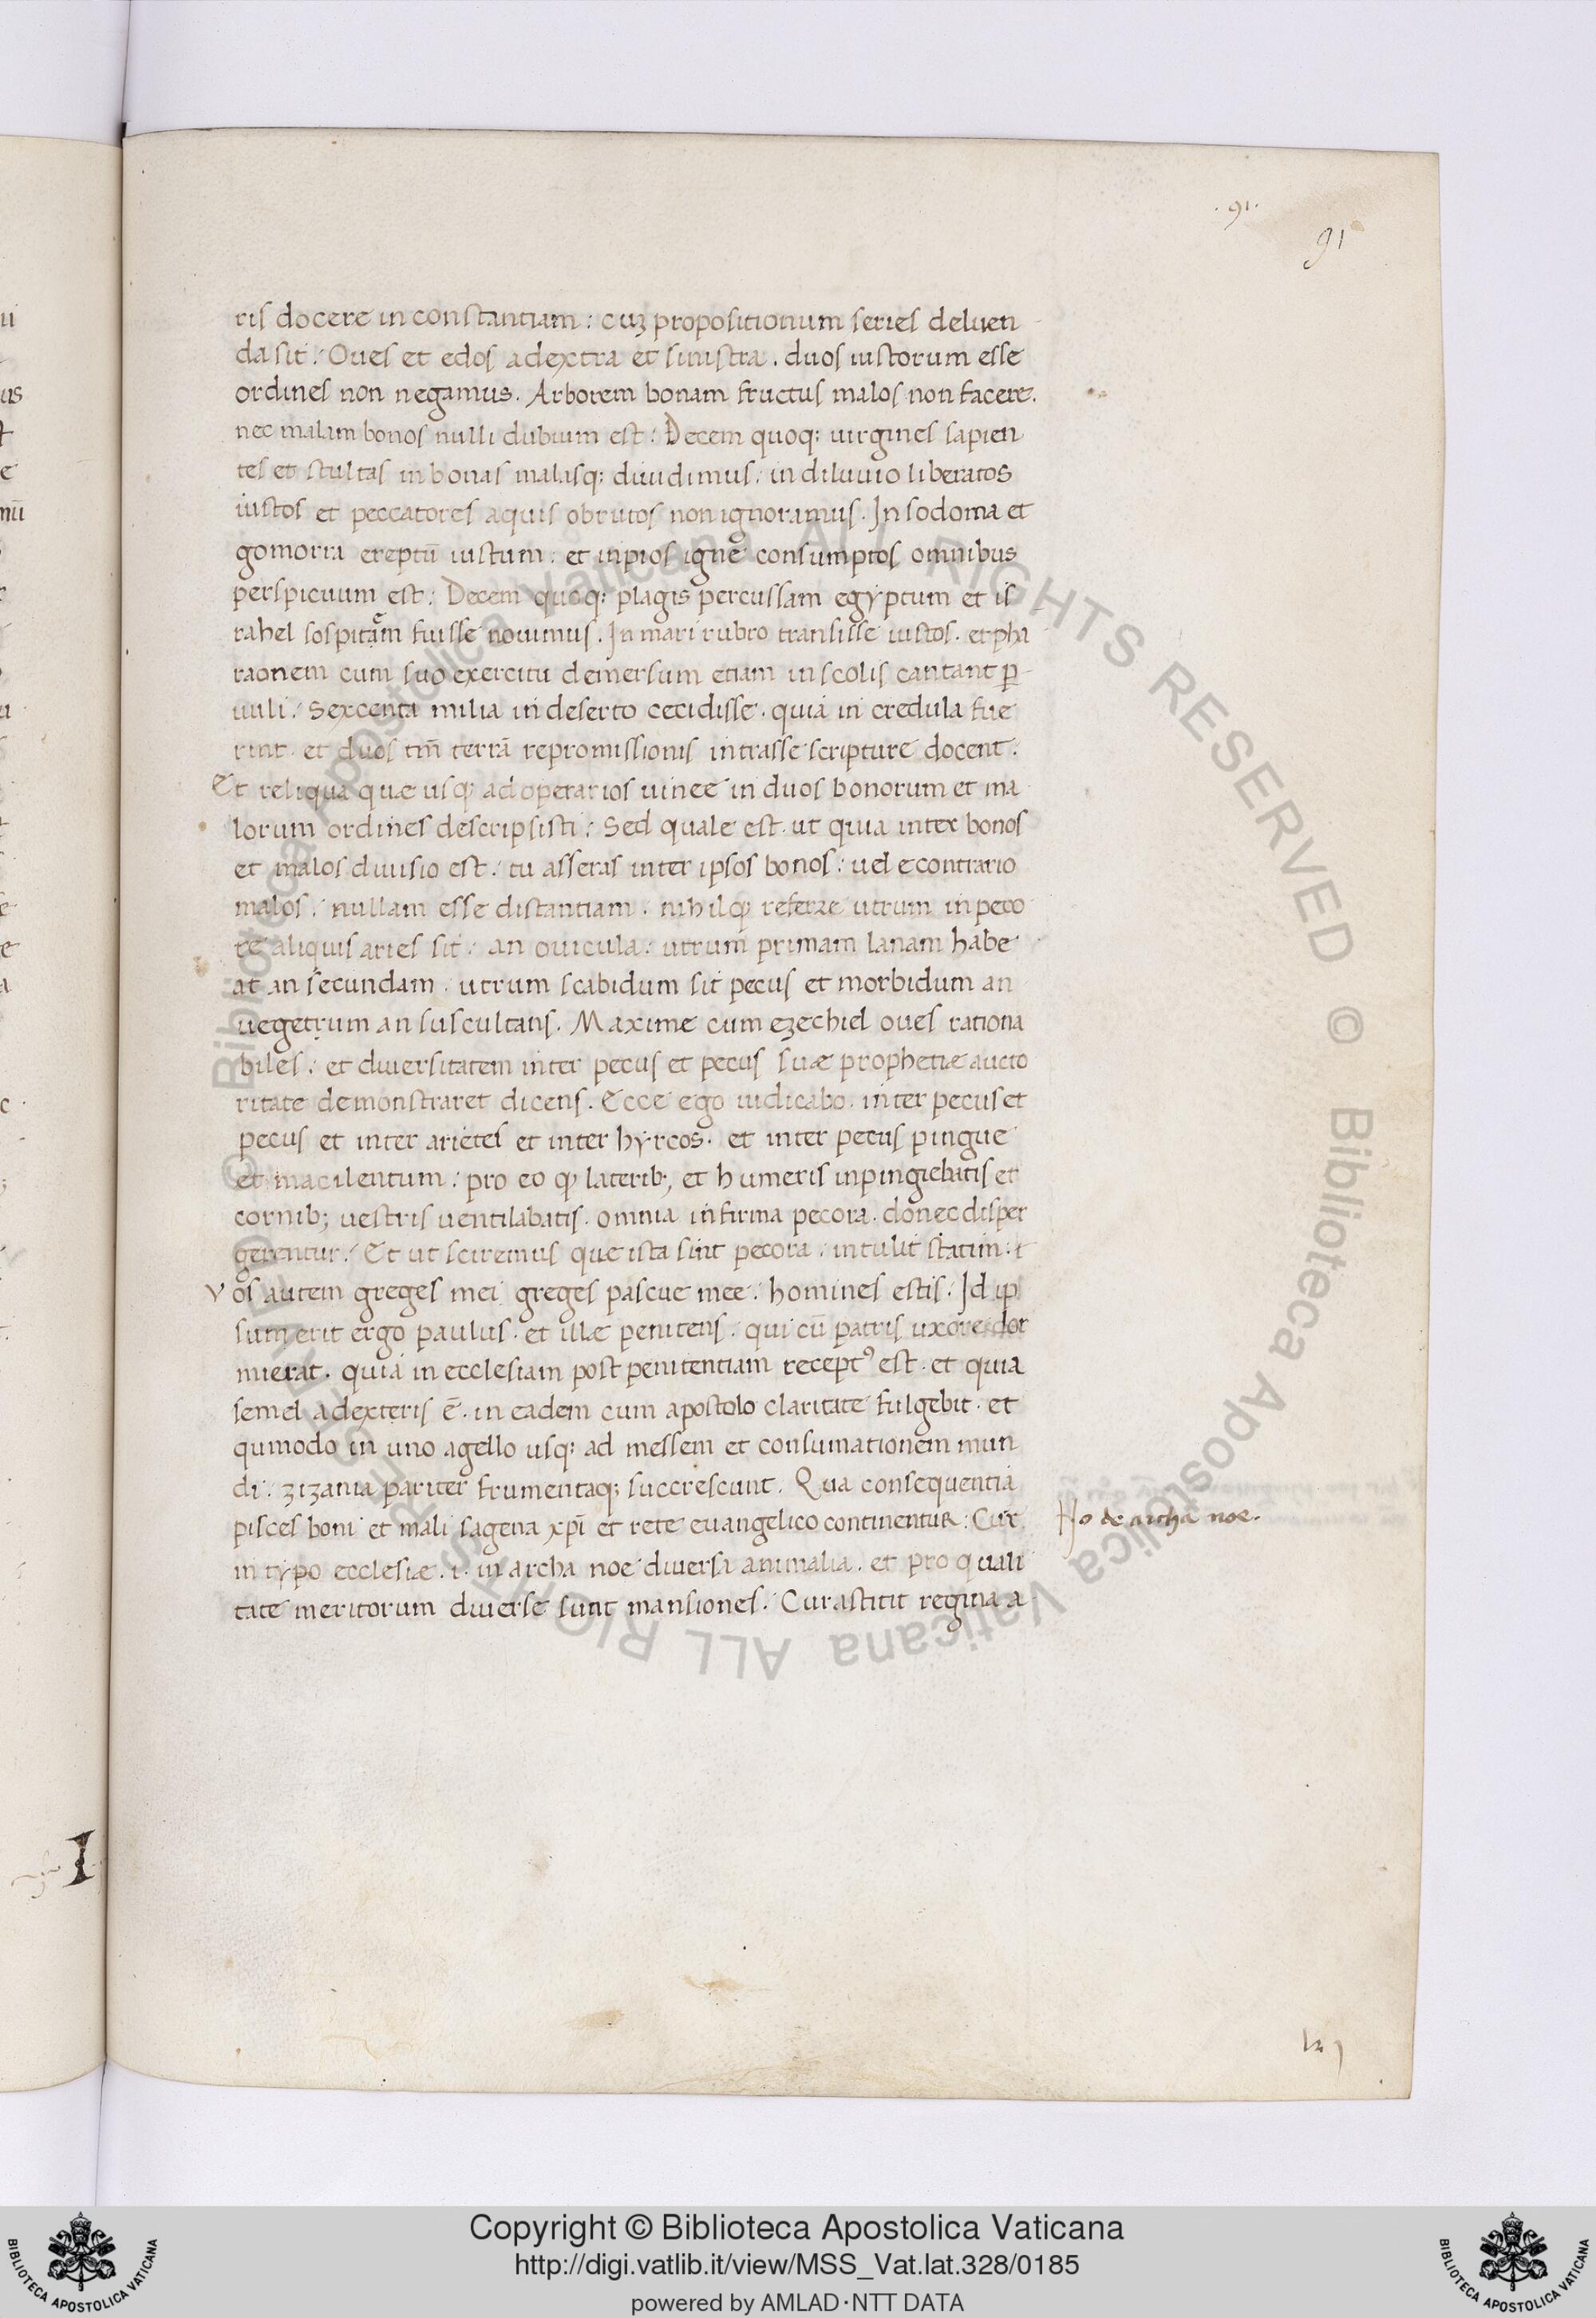 .91.
91
ris docere inconstantiam : cuꝫ propositionum series deluen
da sit. Oues et edos adextra et sinistra. duos iustorum esse
ordines non negamus. Arborem bonam fructus malos non facere.
nec malam bonos nulli dubium est : Decem quoq; uirgines sapien
tes et stultas in bonas malasq; diuidimus. in diluuio liberatos
iustos et peccatores aquis obrutos non ignoramus. In sodoma et
gomorra ereptū iustum. et inpios igne consumptos omnibus
perspicuum est : Decem quoq; plagis percussam egyptum et is
rahel sospitam fuisse nouimus. In mari rubro transisse iustos. et pha
raonem cum suo exercitu demersum etiam in scolis cantant p̱
uuli. Sexcenta milia in deserto cecidisse. quia in credula fue
rint. et duos tm̄ terrā repromissionis intrasse scripture docent.
Et reliqua quæ usq; ad operarios uinee in duos bonorum et ma
lorum ordines descripsisti. Sed quale est. ut quia inter bonos
et malos diuisio est. tu asseras inter ipsos bonos : uel e contrario
malos. nullam esse distantiam. nihilq; referre utrum in peco
re aliquis aries sit. an ouicula. utrum primam lanam habe
at an secundam. utrum scabidum sit pecus et morbidum an
uegetum an suscultans. Maxime cum ezechiel oues rationa
biles. et diuersitatem inter pecus et pecus suæ prophetiæ aucto
ritate demonstraret dicens. Ecce ego iudicabo. inter pecus et
pecus et inter arietes et inter hyrcos. et inter pecus pingue
et macilentum. pro eo ꝙ laterib; et humeris inpingiebatis et
cornib; uestris uentilabatis. omnia infirma pecora. donec disper
gerentur. Et ut sciremus que ista sint pecora. intulit statim :
vos autem greges mei greges pascue mee. homines estis. Id ip
sum erit ergo paulus. et ille penitens. qui cū patris uxore dor
mierat. quia in ecclesiam post penitentiam receptꝰ est. et quia
semel adexteris ē. in eadem cum apostolo claritate fulgebit. et
qumodo in uno agello usq; ad messem et consumationem mun
di. zizania pariter frumentaq; succrescunt. Qua consequentia
pisces boni et mali sagena xp̄i et rete euangelico continentur : Cur
in typo ecclesiæ. i. in archa noe diuersa animalia. et pro quali
tate meritorum diuerse sunt mansiones. Cur astitit regina a
No de archa noe.
I
Copyright © Biblioteca Apostolica Vaticana
http://digi.vatlib.it/view/MSS_Vat.lat.328/0185
powered by AMLAD·NTT DATA
BIBLIOTECA APOSTOLICA VATICANA
BIBLIOTECA APOSTOLICA VATICANA
© Biblioteca Apostolica Vaticana ALL RIGHTS RESERVED © Biblioteca Apostolica Vaticana ALL RIGHTS RESERVED